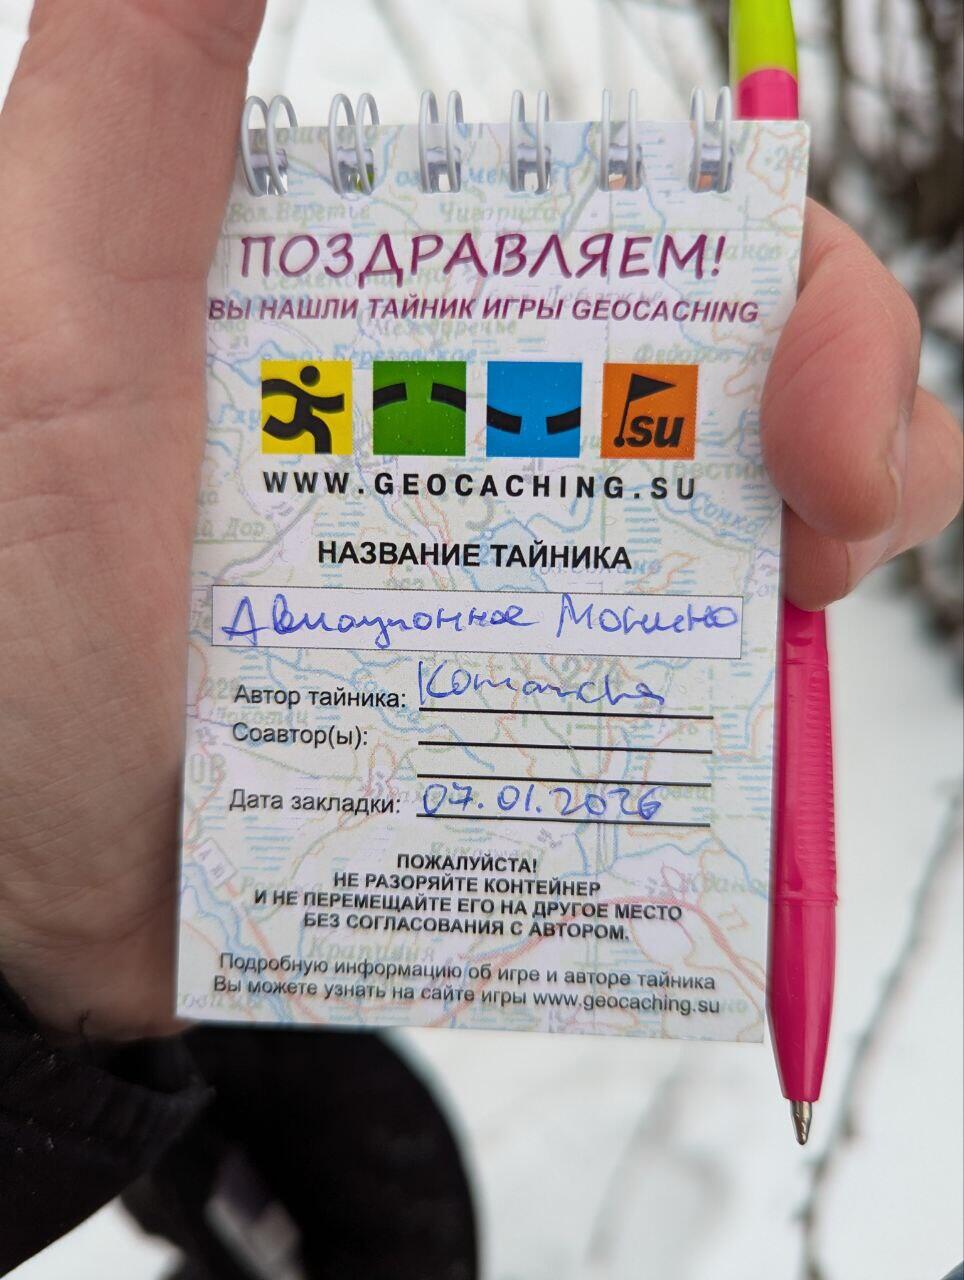 ПОЗДРАВЛЯЕМ!
ВЫ НАШЛИ ТАЙНИК ИГРЫ GEOCACHING
.su
WWW.GEOCACHING.SU
НАЗВАНИЕ ТАЙНИКА
Авиационное Монино
Автор тайника:
Соавтор(ы):
Дата закладки: 07.01.2026
ПОЖАЛУЙСТА!
НЕ РАЗОРЯЙТЕ КОНТЕЙНЕР
И НЕ ПЕРЕМЕЩАЙТЕ ЕГО НА ДРУГОЕ МЕСТО
БЕЗ СОГЛАСОВАНИЯ С АВТОРОМ.
Подробную информацию об игре и авторе тайника
Вы можете узнать на сайте игры www.geocaching.su